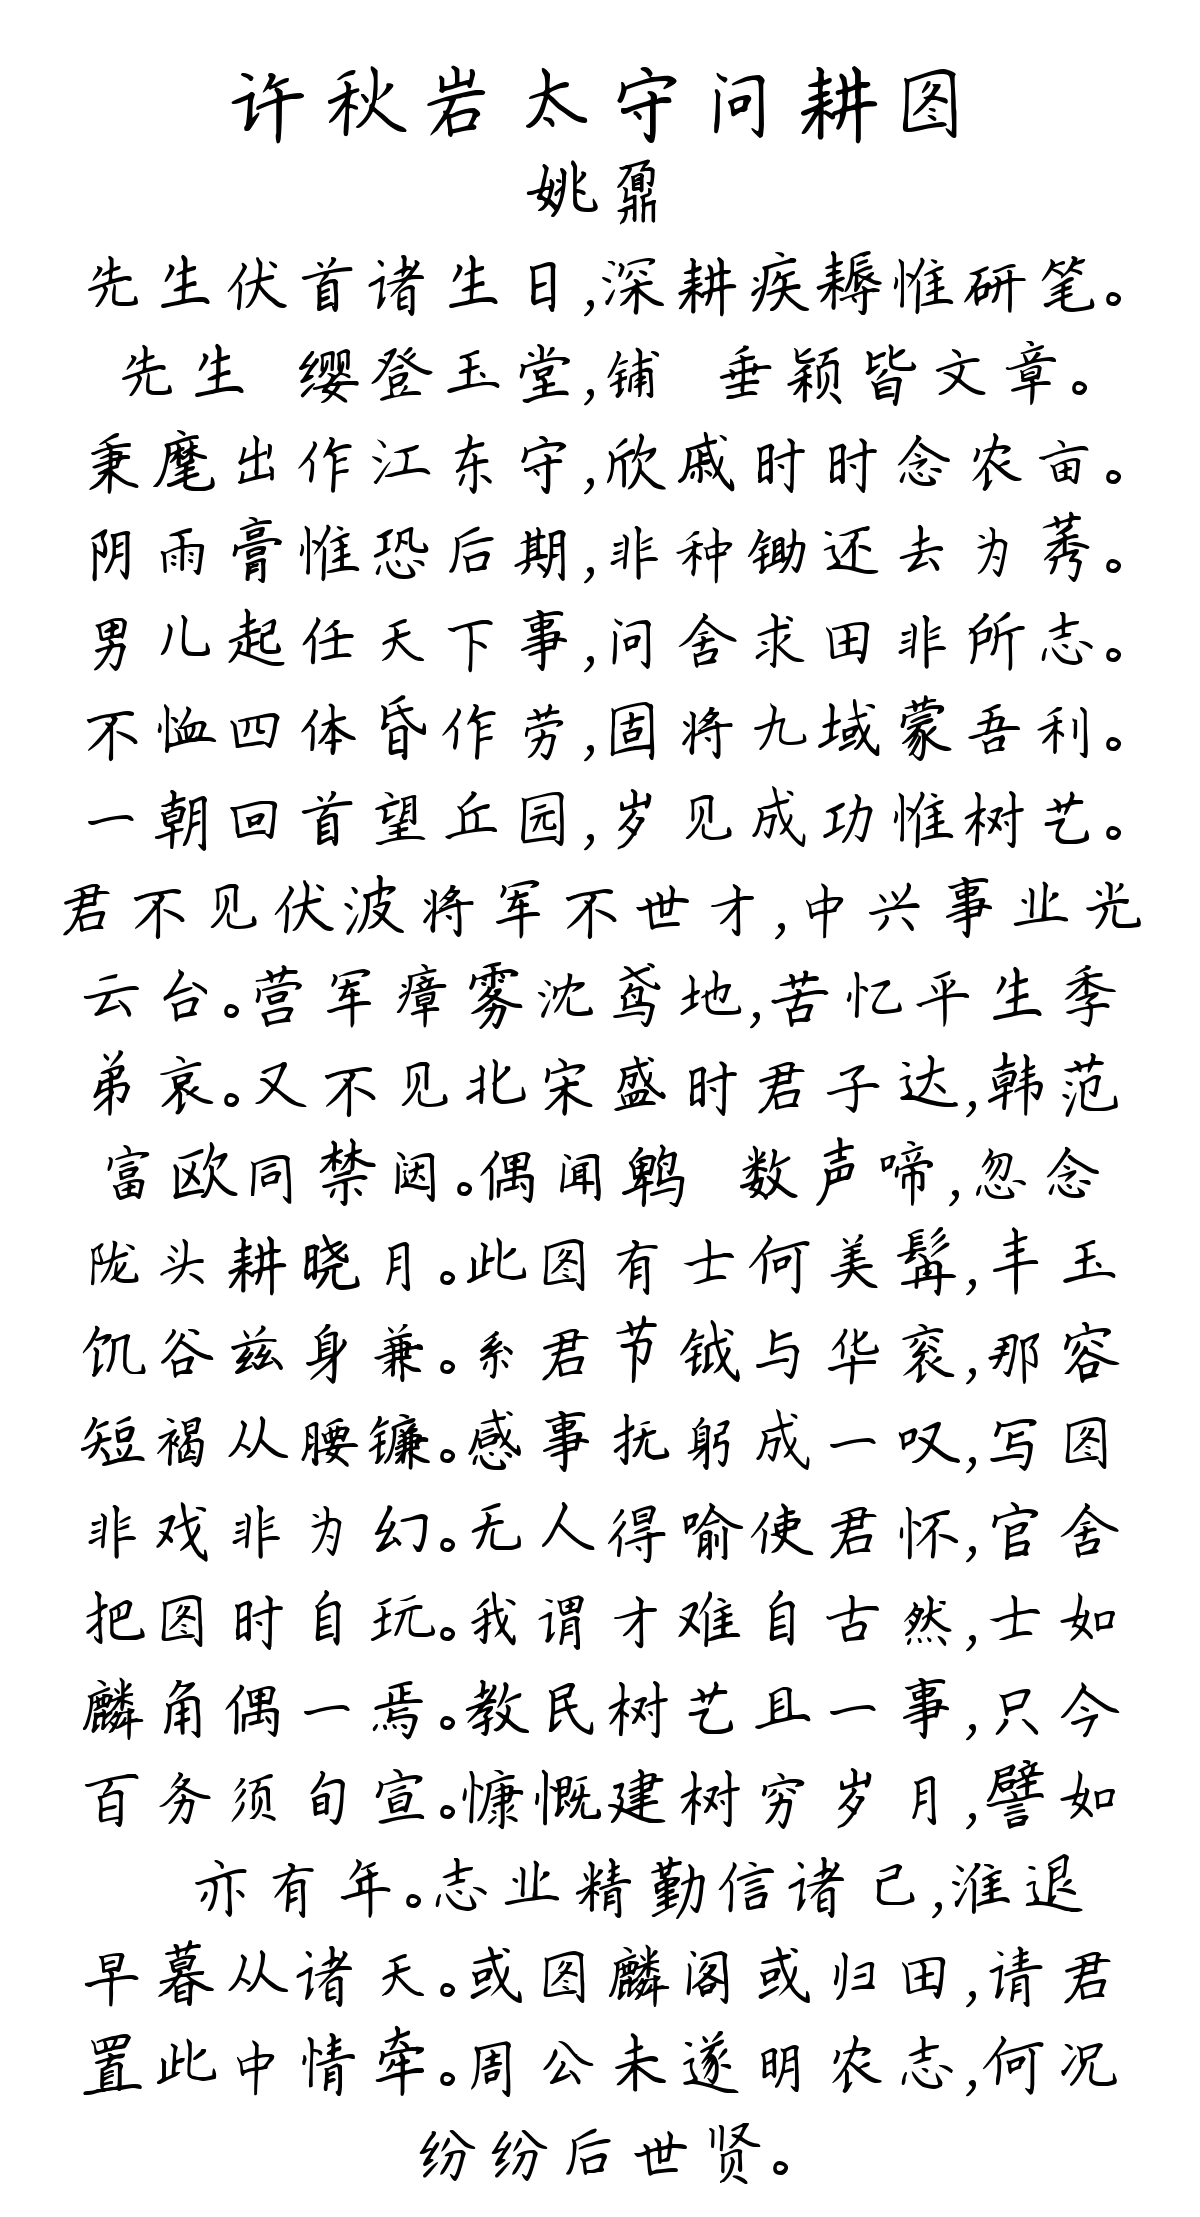 许秋岩太守问耕图
姚鼐
先生伏首诸生日,深耕疾耨惟研笔。
先生 缨登玉堂,铺 垂颖皆文章。
秉麾出作江东守,欣戚时时念农亩。
阴雨膏惟恐后期,非种锄还去为莠。
男儿起任天下事,问舍求田非所志。
不恤四体昏作劳,固将九域蒙吾利。
一朝回首望丘园,岁见成功惟树艺。
君不见伏波将军不世才,中兴事业光
云台。营军瘴雾沈鸢地,苦忆平生季
弟哀。又不见北宋盛时君子达,韩范
富欧同禁闼。偶闻鹎 数声啼,忽念
陇头耕晓月。此图有士何美髯,丰玉
饥谷兹身兼。系君节钺与华衮,那容
短褐从腰镰。感事抚躬成一叹,写图
非戏非为幻。无人得喻使君怀,官舍
把图时自玩。我谓才难自古然,士如
麟角偶一焉。教民树艺且一事,只今
百务须旬宣。慷慨建树穷岁月,譬如
亦有年。志业精勤信诸己,淮退
早暮从诸天。或图麟阁或归田,请君
置此中情牵。周公未遂明农志,何况
纷纷后世贤。